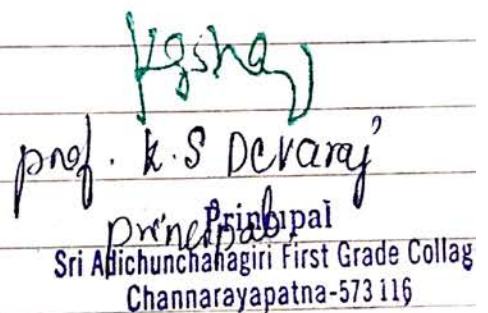 prof. K.S Devaraj
principal.
Principal
Sri Adichunchanagiri First Grade Collag
Channarayapatna-573 116